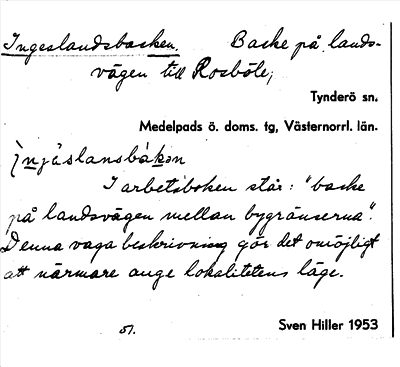 Ingeslandsbacken. Backe på lands-
vägen till Rosböle;
Tynderö sn.
Medelpads ö. doms. tg, Västernorrl. län.
I arbetsboken står: "backe
på landsvägen mellan bygränserna".
Denna vaga beskrivning gör det omöjligt
att närmare ange lokalitetens läge.
51. Sven Hiller 1953